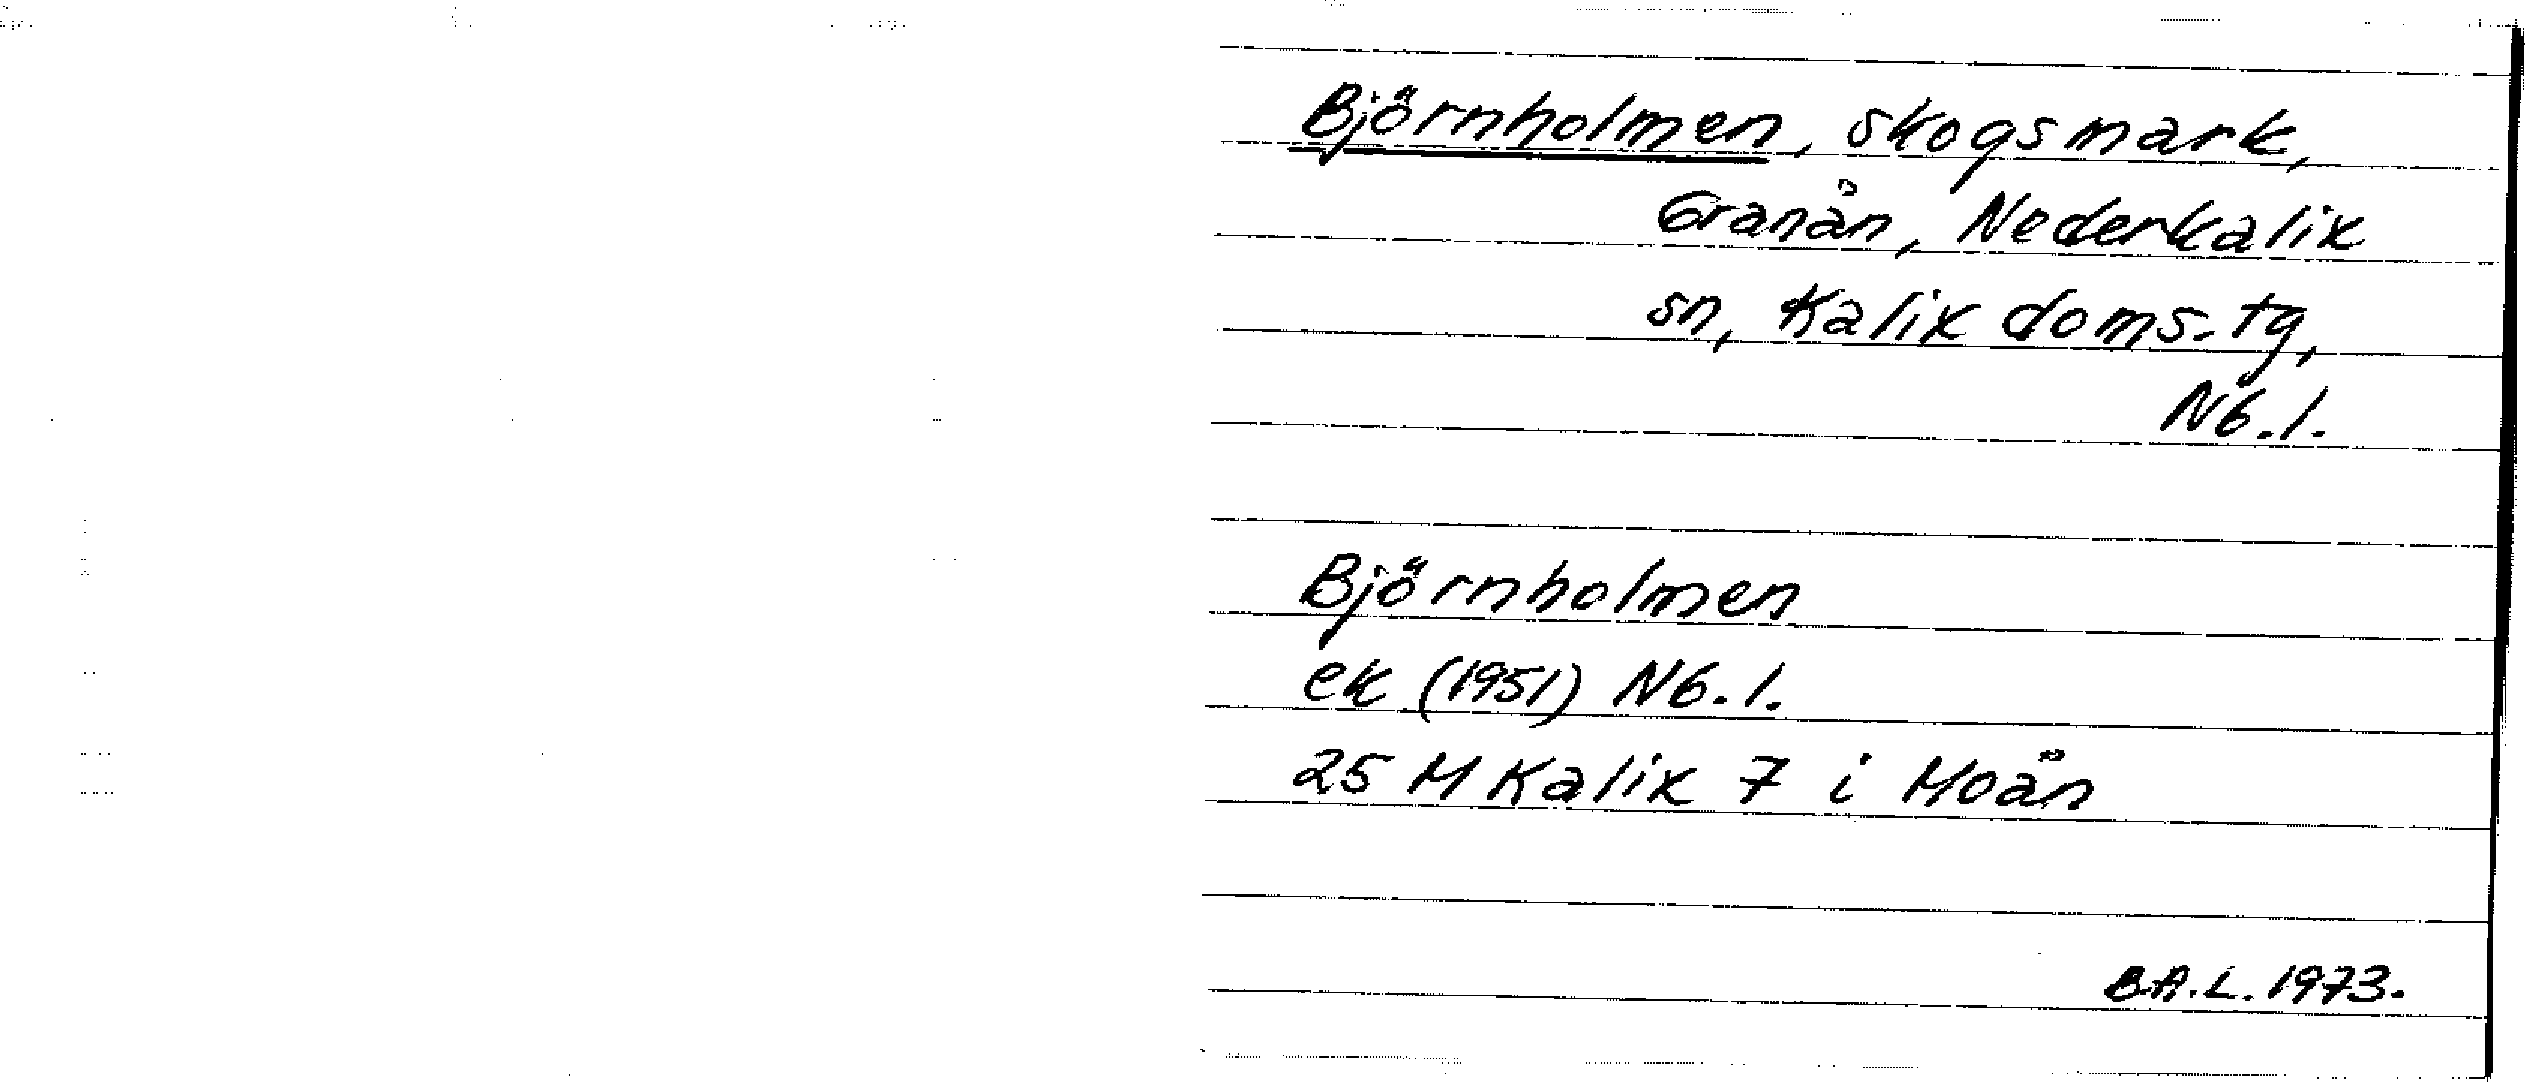 Björnholmen, skogsmark,
Granån, Nederkalix
sn, Kalix doms. tg,
Nb.l.
Björnholmen
ek (1951) Nb.l.
25 M Kalix 7 i Moån
B.A.L. 1973.